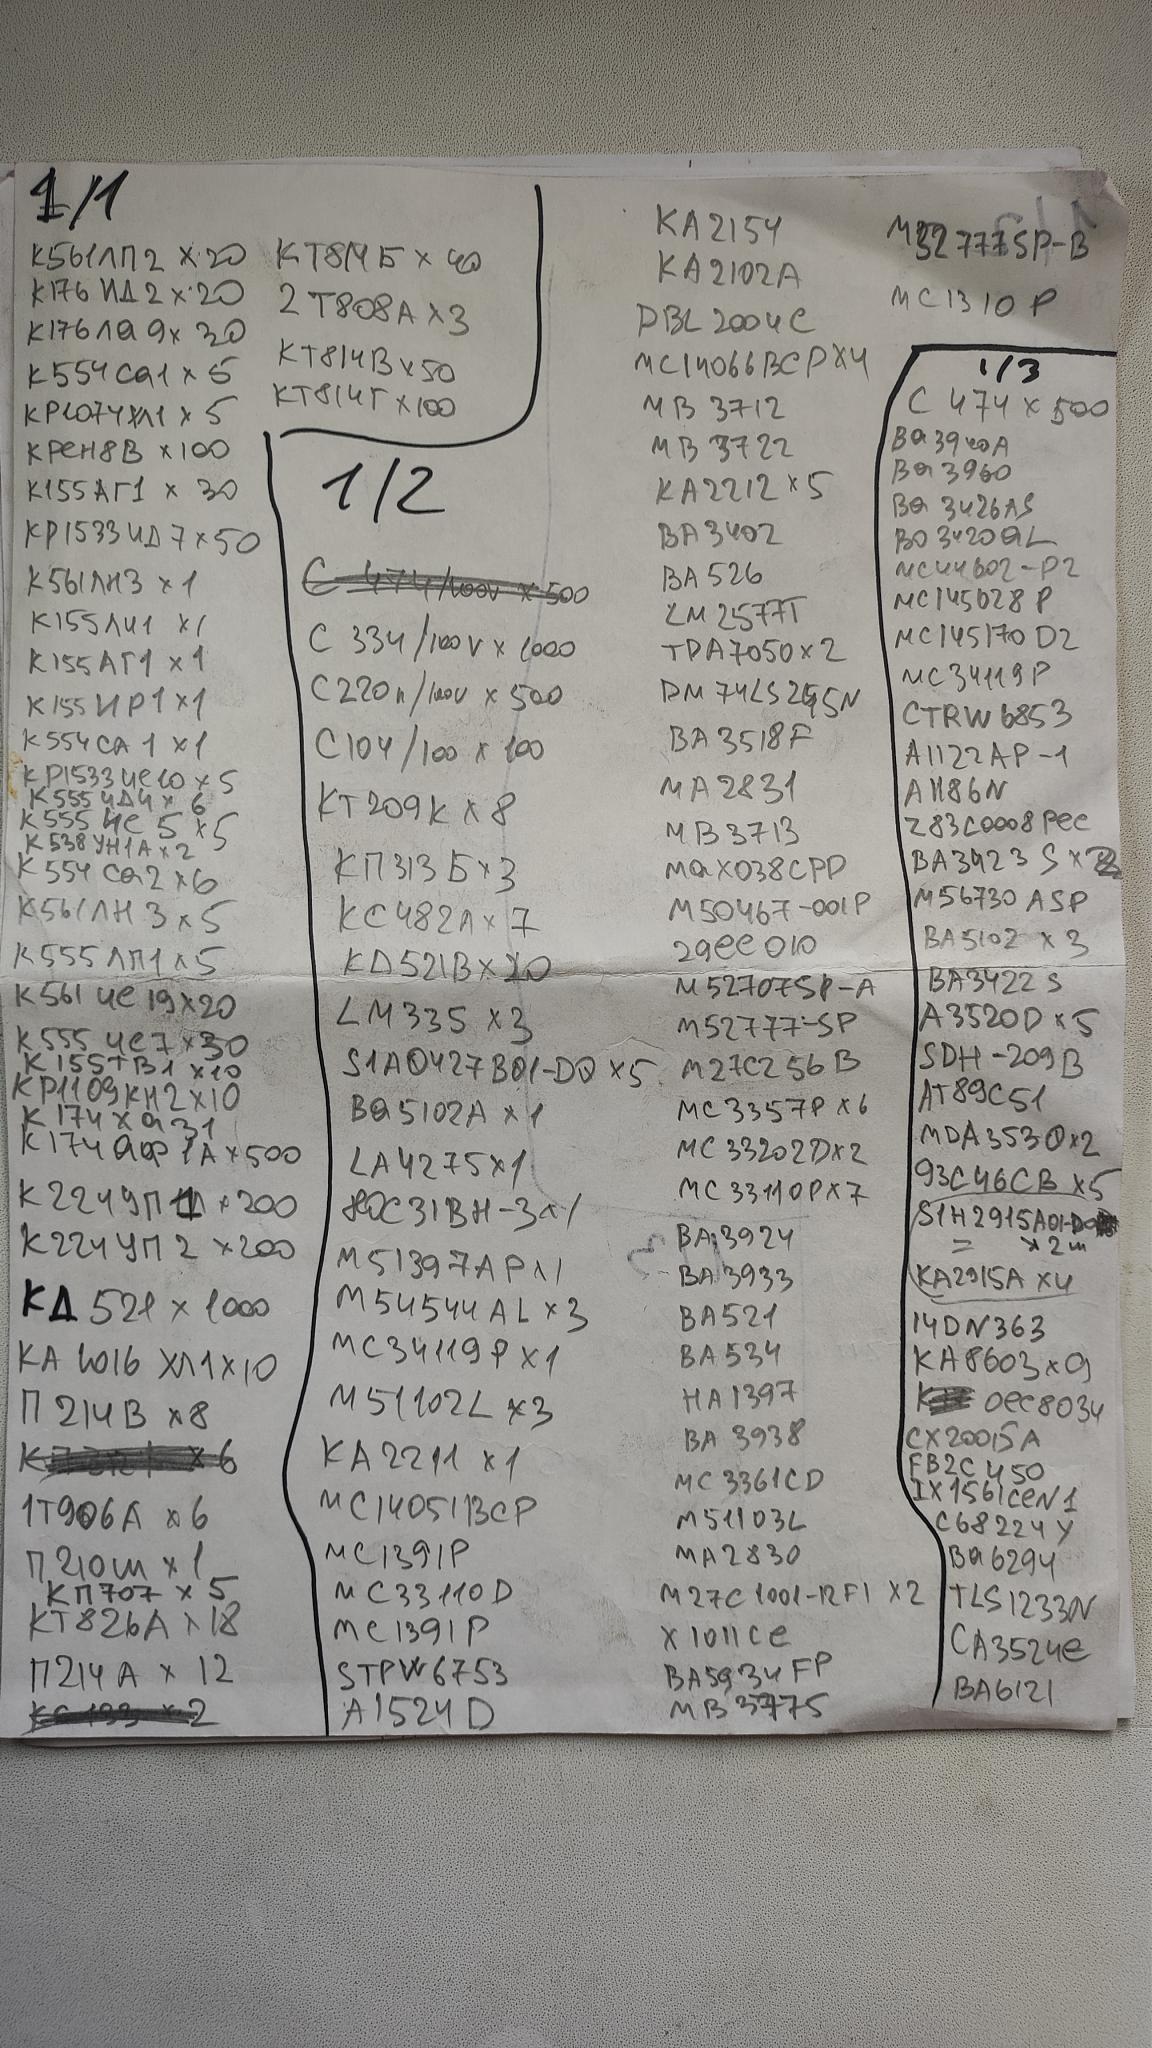 1/1
К561ЛП2 х 20
К176 ИД2 х 20
К176ла9х 30
К554са1 х 5
КР1074ХЛ1 х 5
КРЕН8В х100
К155АГ1 х 30
КР1533ИД7х50
К561ЛН3 х1
К155ЛИ1 х1
К155АГ1 х1
К155ИР1 х1
К554СА1 х1
КР1533ие10 х5
К555ИД4 х 6
К555 ие 5 х5
К538УН1А х2
К554 са2 х6
К561ЛН3 х5
К555ЛП1 х5
К561 ие19х20
К555 ие7 х30
К155ТВ1 х10
КР1109КН2х10
К174ха31
К174 аф1А х500
К224УП1 х200
К224УП2 х200
КД 521 х 1000
КА 1016 ХЛ1х10
П214В х8
х 6
1Т906А х6
П210ш х1
КП707 х 5
КТ826А х18
П214А х 12
х 2
КТ814Б х 40
2Т808А х3
КТ814В х50
КТ814Г х100
1/2
С 474/100v х 500
С 334/100v х 1000
С220n/100v х 500
С104/100 х 100
КТ209К х8
КП313Б х3
КС482А х 7
КД521В х 20
LM335 х3
S1A0427B01-D0 х5
Ba5102A х1
LA4275х1
М51397АР х1
М54544AL х3
МС34119Р х1
М51102L х3
КА2211 х1
МС14051ВСР
МС1391Р
МС33110D
МС1391Р
STPW6753
А1524D
КА2154
КА2102А
DBL2004C
МС14066ВСРх4
МВ3712
МВ3722
КА2212 х5
ВА3402
ВА526
LM2577T
TDA7050х2
DM74LS245N
ВА3518F
МА2831
МВ3713
маХ038CPD
М50467-001Р
29ee010
М52707SP-A
М52777-SP
М27С256В
МС3357Р х6
МС33202Dх2
МС33110Рх7
ВА3924
ВА3933
ВА521
ВА534
НА1397
ВА3938
МС3361СD
М51103L
МА2830
М27С1001-12F1 х2
Х1011се
ВА5934FP
МВ3775
М52777SP-B
МС1310Р
1/3
С 474 х 500
Ва3940А
Ва3960
Ва3426AS
МС44602-Р2
МС145028Р
МС145170D2
МС34119Р
CTRW6853
А1122АР-1
АН86N
Z83C0008Pec
ВА3423S х2
М56730ASP
ВА5102 х 3
ВА3422S
А3520D х5
SDH-209B
АТ89С51
MDA3530х2
93С46СВ х5
S1H2915A01-D0
= х 2ш
КА2915А х4
14DN363
КА8603х9
оес8034
СХ20015А
FB2C450
IX1561CeN1
С68224У
Ва6294
TLS1233N
СА3524е
ВА6121